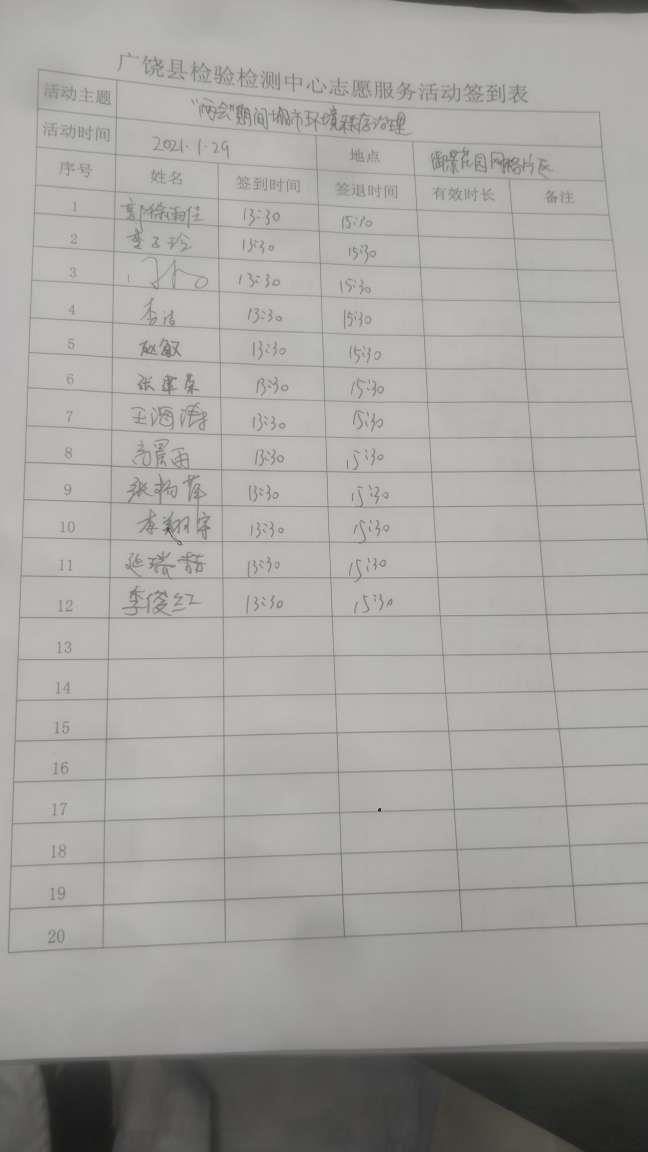 广饶县检验检测中心志愿服务活动签到表
活动主题 "两会"期间城市环境秩序治理
活动时间 2021.1.29 地点 御景花园网格片区
序号 姓名 签到时间 签退时间 有效时长 备注
1 郭徐雨佳 13:30 15:10
2 李子玲 13:30 15:30
3 13:30 15:30
4 李洁 13:30 15:30
5 赵敏 13:30 15:30
6 张 13:30 15:30
7 王海涛 13:30 15:30
8 高景雨 13:30 15:30
9 张杨萍 13:30 15:30
10 李翔宇 13:30 15:30
11 延瑞喆 13:30 15:30
12 李俊红 13:30 15:30
13
14
15
16
17
18
19
20